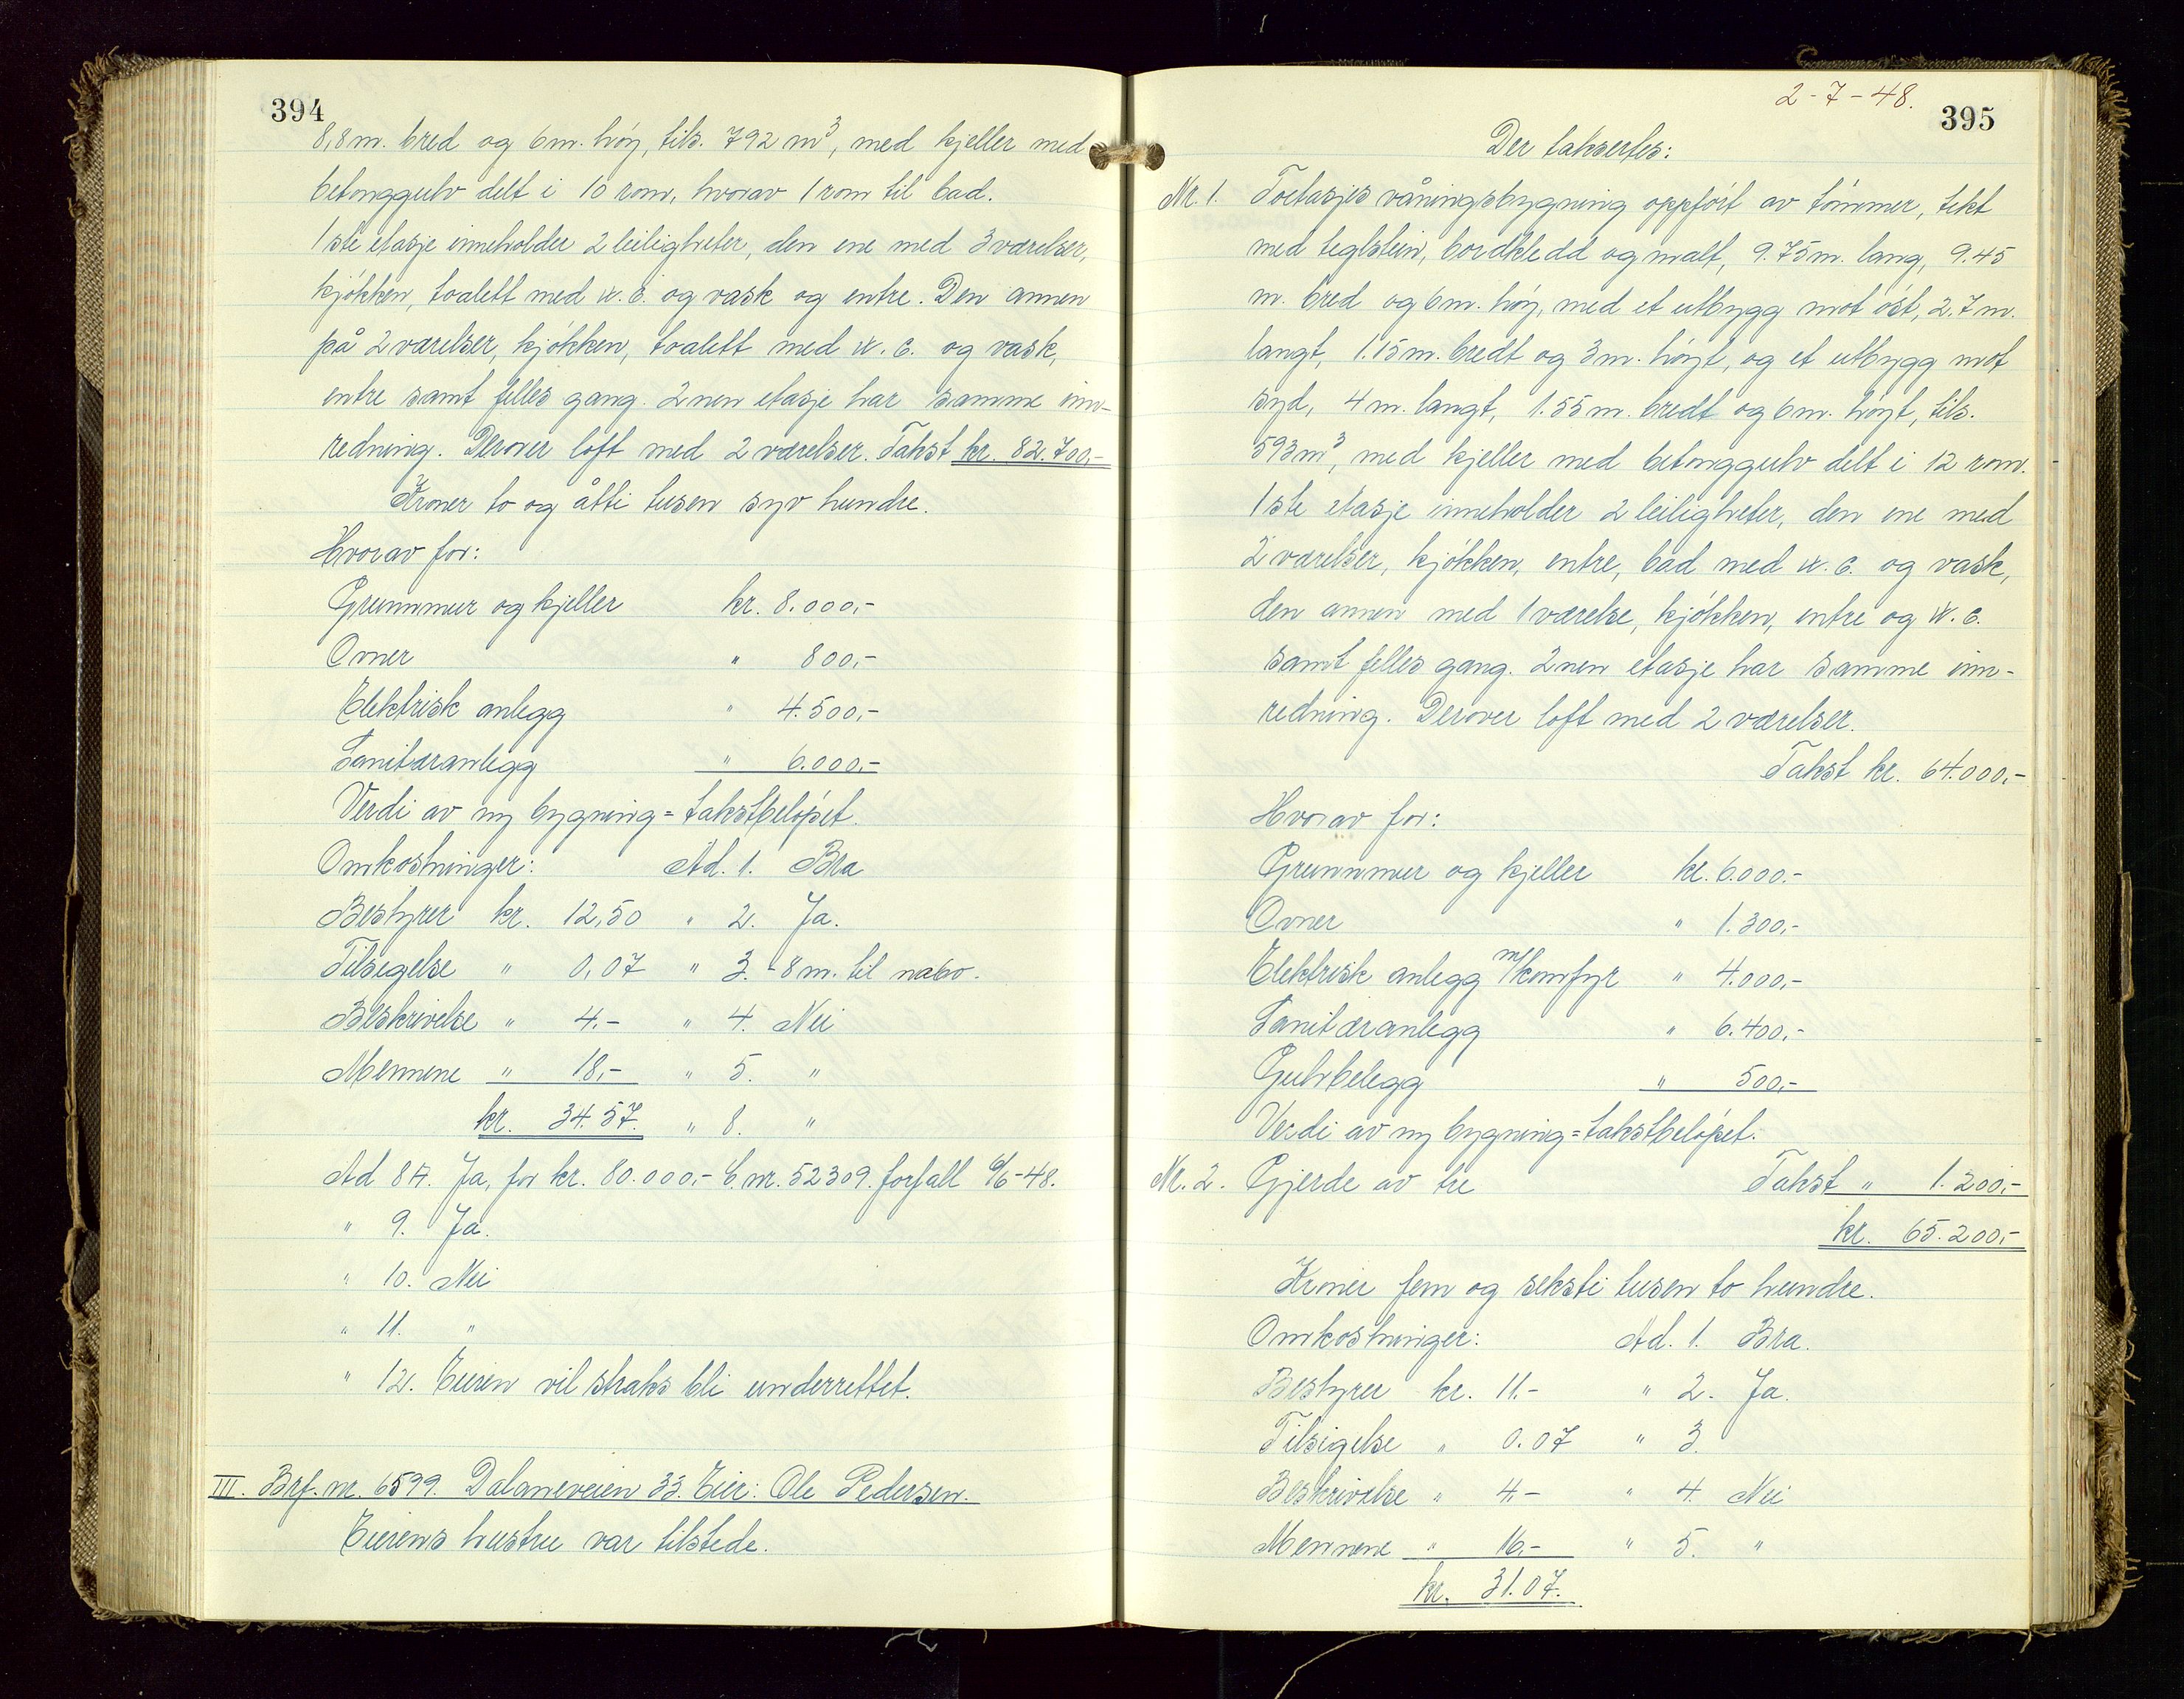 394
8,8m. bred og 6m. høy, tils. 792 m³, med kjeller med
betonggulv delt i 10 rom, hvorav 1 rom til bad.
1ste etasje inneholder 2 leiligheter, den ene med 3 værelser,
kjøkken, toalett med w.c. og vask og entre. Den annen
på 2 værelser, kjøkken, toalett med w.c. og vask,
entre samt felles gang. 2nen etasje har samme inn-
redning. Derover loft med 2 værelser. Takst kr. 82.700,-
Kroner to og åtti tusen syv hundre.
Hvorav for:
Grunnmur og kjeller kr. 8.000,-
Ovner " 800,-
Elektrisk anlegg " 4.500,-
Sanitæranlegg " 6.000,-
Verdi av ny bygning = takstbeløpet.
Omkostninger: Ad. 1. Bra
Bestyrer kr. 12,50 " 2. Ja.
Tilsigelse " 0,07 " 3. -8 m. til nabo.
Beskrivelse " 4.- " 4. Nei
Mennene " 18,- " 5. "
kr. 34.57. " 8. "
Ad 8A. Ja, for kr. 80.000,- C.nr. 52309. forfall /6-48.
" 9. Ja.
" 10. Nei
" 11. "
" 12. Eieren vil straks bli underrettet.
III. Brf. nr. 6599. Dalaneveien 33. Eier: Ole Pedersen.
Eierens hustru var tilstede.
2-7-48.
395
Der taksertes:
Nr. 1. Toetasjes våningsbygning oppført av tømmer, tekt
med teglstein, bordkledd og malt, 9.75 m. lang, 9.45
m. bred og 6m. høy, med et utbygg mot øst, 2.7 m.
langt, 1.15 m. bredt og 3m. høyt, og et utbygg mot
syd, 4 m. langt, 1.55 m. bredt og 6m. høyt, tils.
593 m³, med kjeller med betonggulv delt i 12 rom.
1ste etasje inneholder 2 leiligheter, den ene med
2 værelser, kjøkken, entre, bad med w.c. og vask,
den annen med 1 værelse, kjøkken, entre og w.c.
samt felles gang. 2nen etasje har samme inn-
redning. Derover loft med 2 værelser.
Takst kr. 64.000,-
Hvorav for:
Grunnmur og kjeller kr. 6.000.-
Ovner " 1.300,-
Elektrisk anlegg m/komfyr " 4.000,-
Sanitæranlegg " 6.400,-
Gulvbelegg " 500,-
Verdi av ny bygning = takstbeløpet.
Nr. 2. Gjerde av tre Takst " 1.200,-
kr. 65.200,-
Kroner fem og seksti tusen to hundre.
Omkostninger: Ad. 1. Bra.
Bestyrer kr. 11.- " 2. Ja.
Tilsigelse " 0.07 " 3.
Beskrivelse " 4,- " 4. Nei
Mennene " 16.- " 5. "
kr. 31.07.